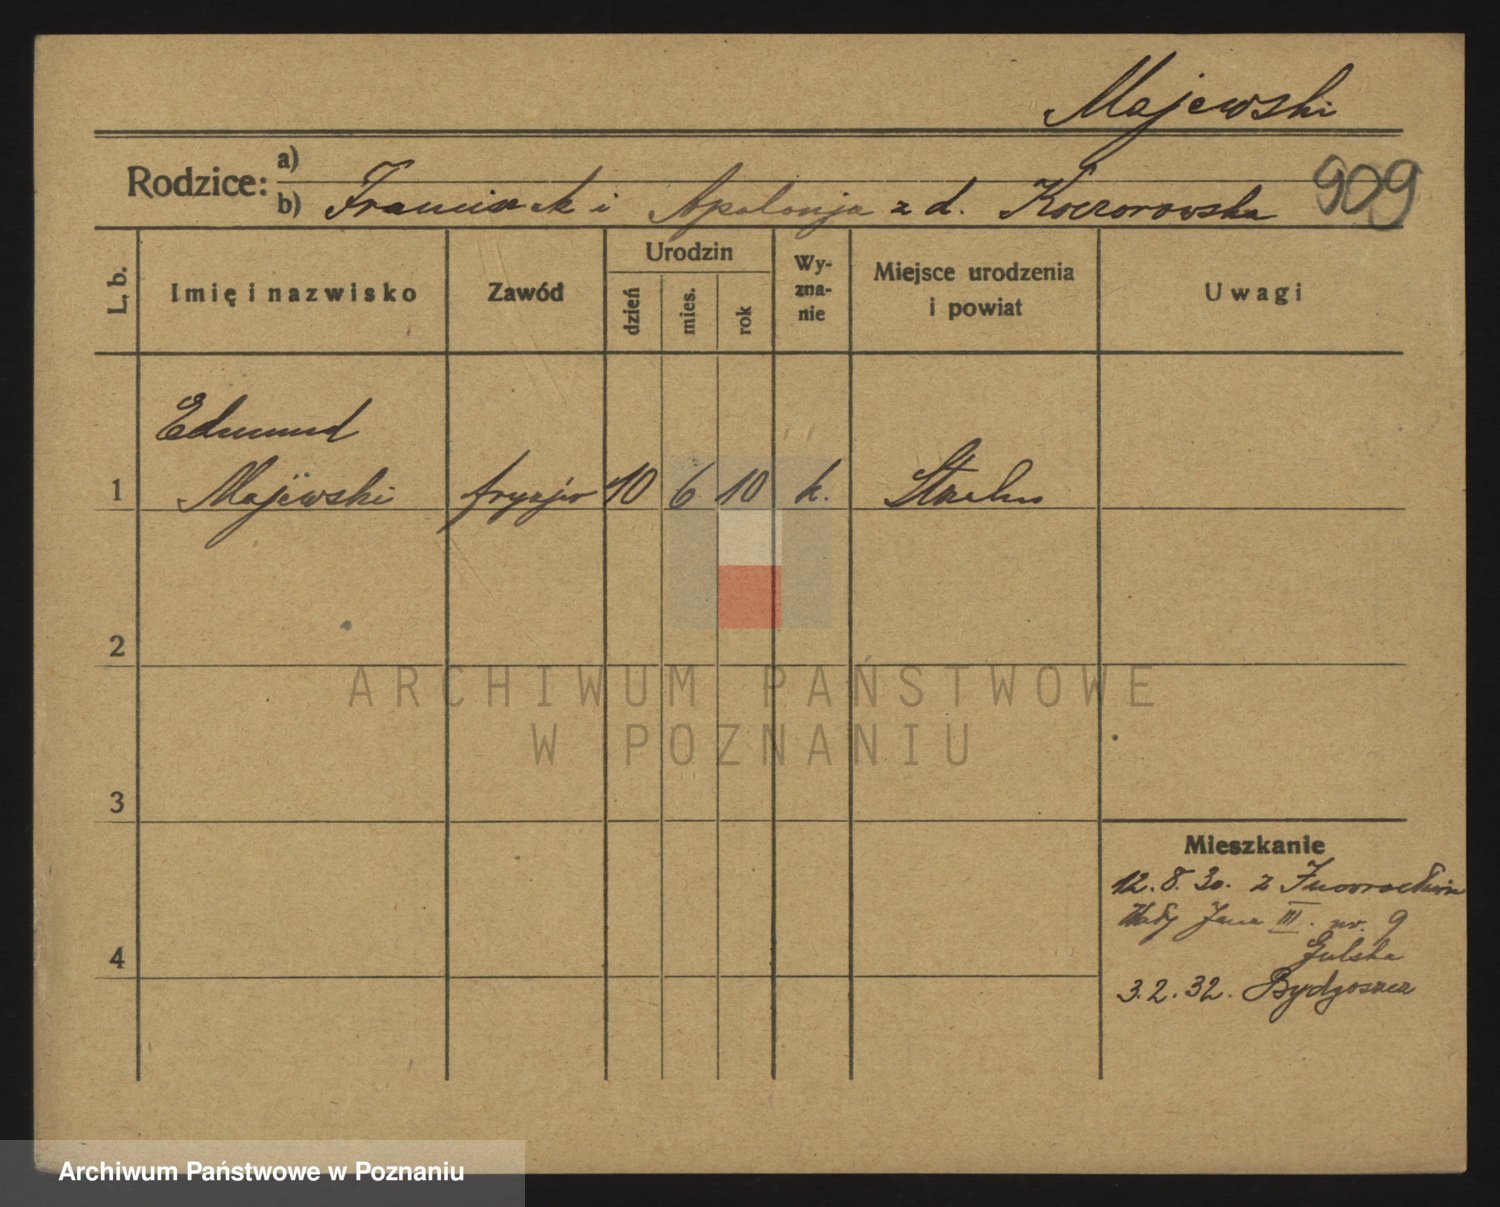 Majewski
Rodzice: a)
b) Franciszek i Apolonja z d. Koczorowska
909
L. b.
Imię i nazwisko
Zawód
Urodzin
dzień
mies.
rok
Wy-
zna-
nie
Miejsce urodzenia
i powiat
Uwagi
Edmund
1 Majewski fryzjer 10 6 10 k.
2
3
4
Mieszkanie
12. 8. 30. z Inowrocławia
Jana III. nr. 9
3. 2. 32. Bydgoszcz
ARCHIWUM PAŃSTWOWE
W POZNANIU
Archiwum Państwowe w Poznaniu